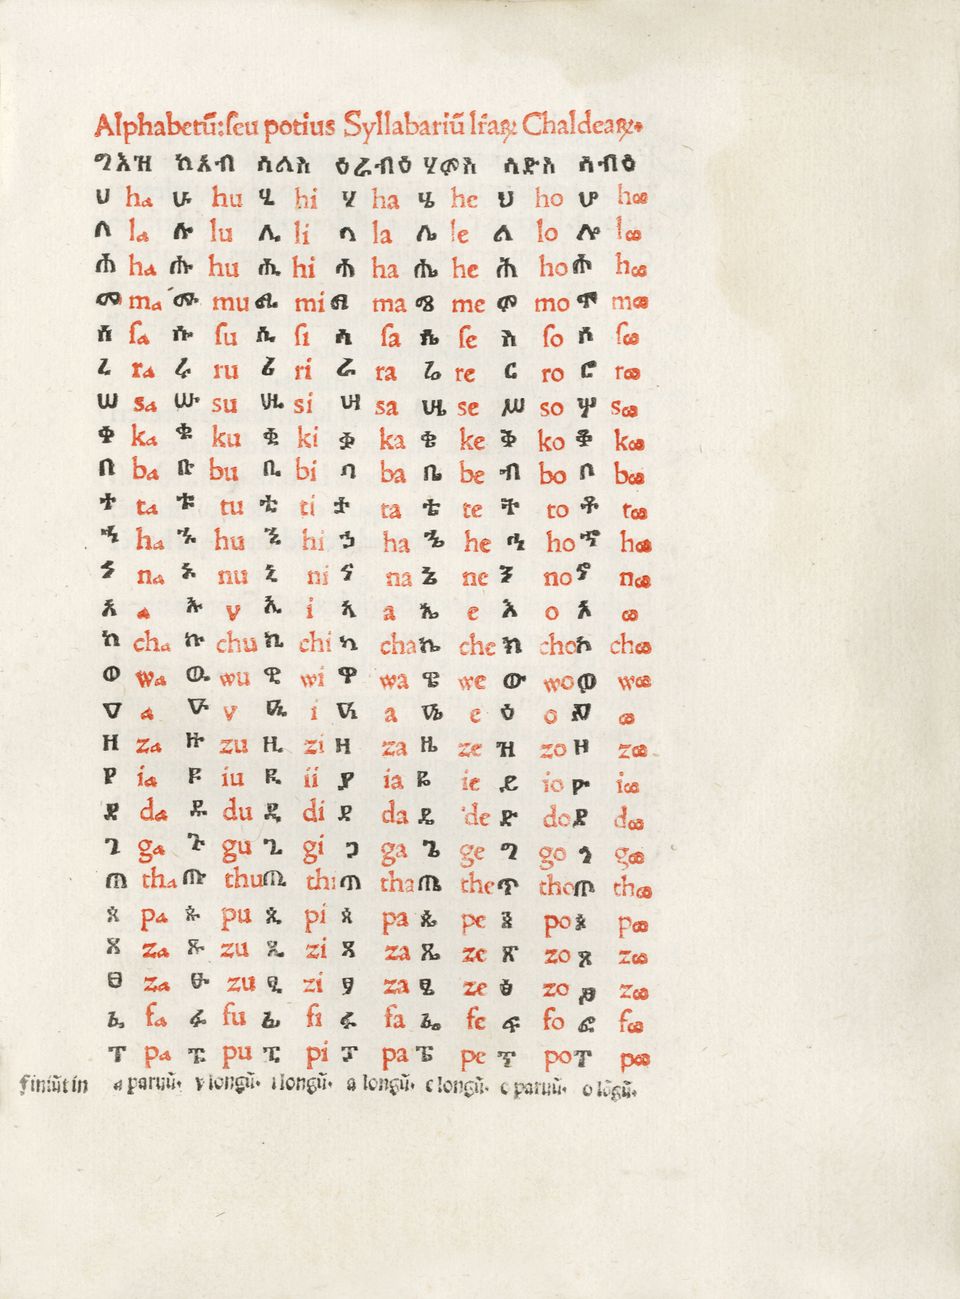 Alphabetū: ſeu potius Syllabariū lr̄aꝝ Chaldeaꝝ.
ግእዝ ካእብ ሳልስ ዕራብዕ ሃምስ ሳድስ ሳብዕ
ሀ ha ሁ hu ሂ hi ሃ ha ሄ he ህ ho ሆ hꝏ
ለ la ሉ lu ሊ li ላ la ሌ le ል lo ሎ lꝏ
ሐ ha ሑ hu ሒ hi ሓ ha ሔ he ሕ ho ሖ hꝏ
መ ma ሙ mu ሚ mi ማ ma ሜ me ም mo ሞ mꝏ
ሰ ſa ሱ ſu ሲ ſi ሳ ſa ሴ ſe ስ ſo ሶ ſꝏ
ረ ra ሩ ru ሪ ri ራ ra ሬ re ር ro ሮ rꝏ
ሠ sa ሡ su ሢ si ሣ sa ሤ se ሥ so ሦ sꝏ
ቀ ka ቁ ku ቂ ki ቃ ka ቄ ke ቅ ko ቆ kꝏ
በ ba ቡ bu ቢ bi ባ ba ቤ be ብ bo ቦ bꝏ
ተ ta ቱ tu ቲ ti ታ ta ቴ te ት to ቶ tꝏ
ኀ ha ኁ hu ኂ hi ኃ ha ኄ he ኅ ho ኆ hꝏ
ነ na ኑ nu ኒ ni ና na ኔ ne ን no ኖ nꝏ
አ a ኡ v ኢ i ኣ a ኤ e እ o ኦ ꝏ
ከ cha ኩ chu ኪ chi ካ cha ኬ che ክ cho ኮ chꝏ
ወ wa ዉ wu ዊ wi ዋ wa ዌ we ው wo ዎ wꝏ
ዐ a ዑ v ዒ i ዓ a ዔ e ዕ o ዖ ꝏ
ዘ za ዙ zu ዚ zi ዛ za ዜ ze ዝ zo ዞ zꝏ
የ ia ዩ iu ዪ ii ያ ia ዬ ie ይ io ዮ iꝏ
ደ da ዱ du ዲ di ዳ da ዴ de ድ do ዶ dꝏ
ገ ga ጉ gu ጊ gi ጋ ga ጌ ge ግ go ጎ gꝏ
ጠ tha ጡ thu ጢ thi ጣ tha ጤ the ጥ tho ጦ thꝏ
ጰ pa ጱ pu ጲ pi ጳ pa ጴ pe ጵ po ጶ pꝏ
ጸ za ጹ zu ጺ zi ጻ za ጼ ze ጽ zo ጾ zꝏ
ፀ za ፁ zu ፂ zi ፃ za ፄ ze ፅ zo ፆ zꝏ
ፈ fa ፉ fu ፊ fi ፋ fa ፌ fe ፍ fo ፎ fꝏ
ፐ pa ፑ pu ፒ pi ፓ pa ፔ pe ፕ po ፖ pꝏ
finiūt in a paruū. v longū. i longū. a longū. e longū. e paruū. o lōgū.